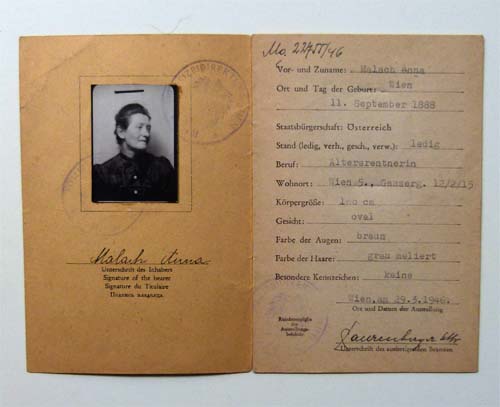 Malach Anna
Unterschrift des Inhabers
Signature of the bearer
Signature du Titulaire
Подпись владельца
Vor- und Zuname: Malach Anna
Ort und Tag der Geburt: Wien
11. September 1888
Staatsbürgerschaft: Österreich
Stand (ledig, verh., gesch., verw.): ledig
Beruf: Altersrentnerin
Wohnort: Wien 5.,
Körpergröße: cm
Gesicht: oval
Farbe der Augen: braun
Farbe der Haare: grau meliert
Besondere Kennzeichen: keine
Wien, am 29.3.1946.
Ort und Datum der Ausstellung
Rundstampiglie
der
Ausstellungs-
behörde
Unterschrift des ausfertigenden Beamten